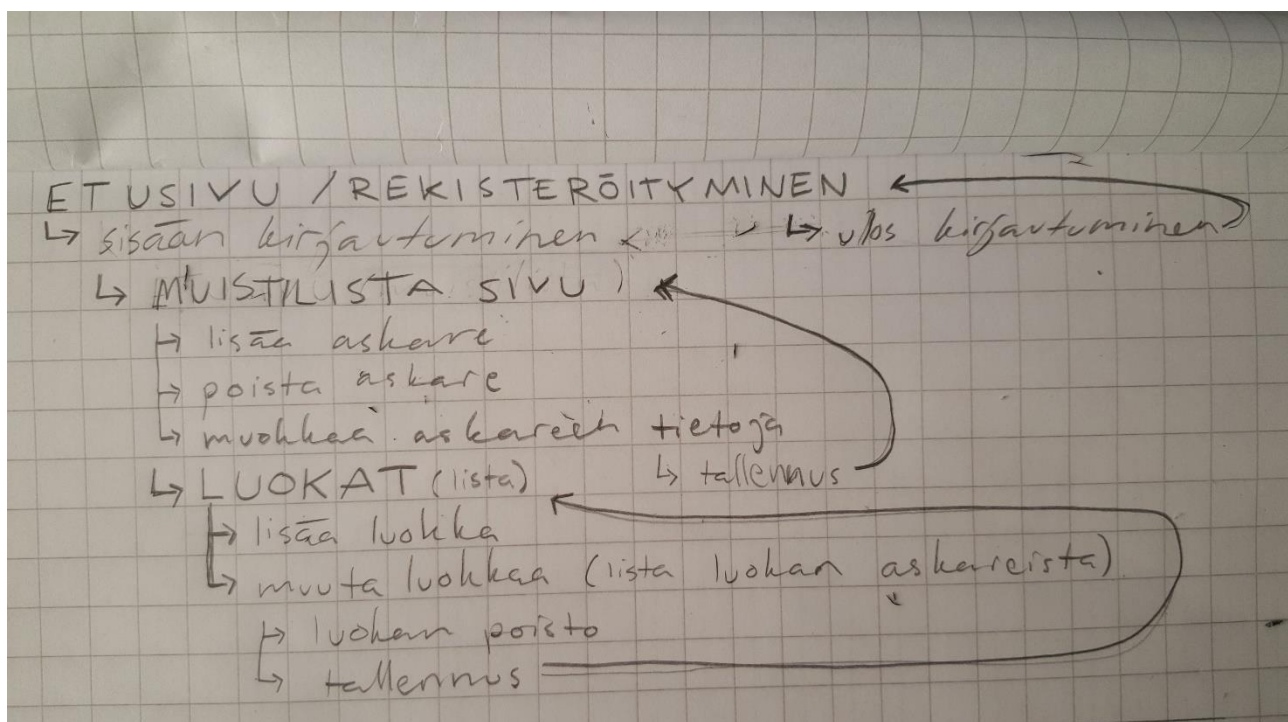 ETUSIVU / REKISTERÖITYMINEN
↳ sisään kirjautuminen ↳ ulos kirjautuminen
↳ MUISTILISTA SIVU
↳ lisää askare
↳ poista askare
↳ muokkaa askareen tietoja
↳ LUOKAT (lista) ↳ tallennus
↳ lisää luokka
↳ muuta luokkaa (lista luokan askareista)
↳ luokan poisto
↳ tallennus